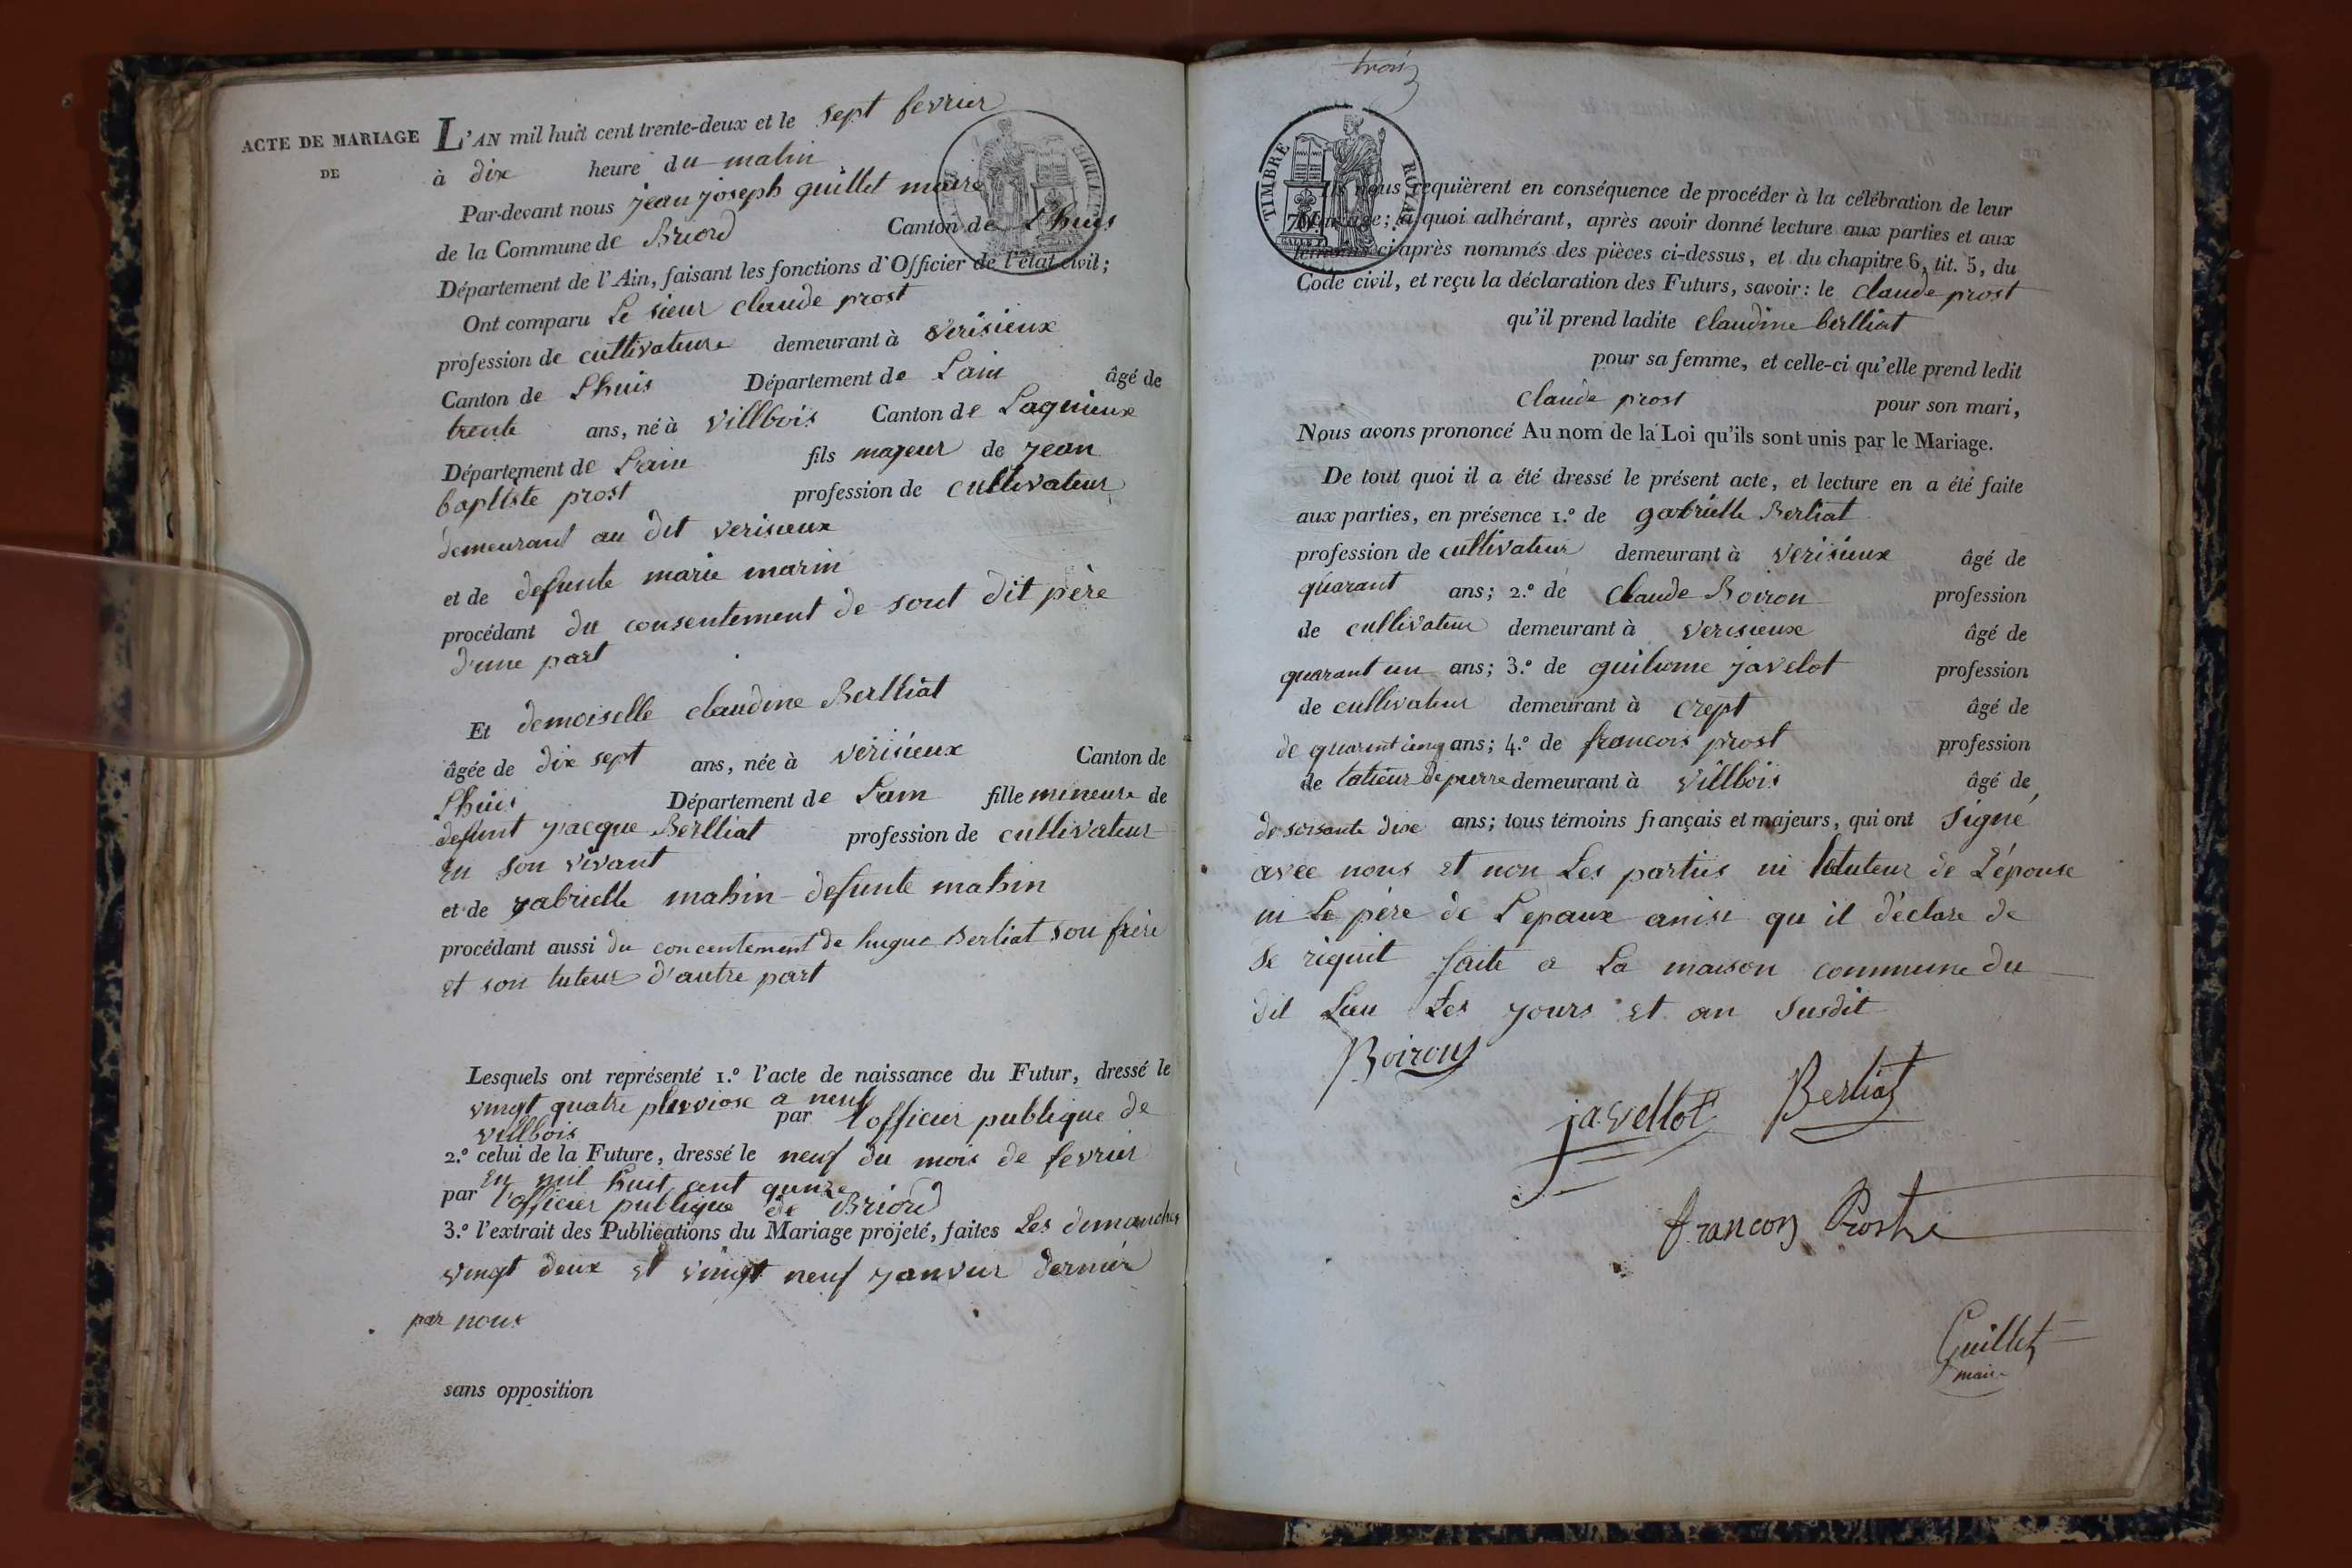 ACTE DE MARIAGE
DE
L'AN mil huit cent trente-deux et le sept fevrier
à dix heure du matin
Par-devant nous jean joseph guillet maire
de la Commune de Briord Canton de Lhuis
Département de l'Ain, faisant les fonctions d'Officier de l'état civil;
Ont comparu Le sieur claude prost
profession de cultivateure demeurant à verisieux
Canton de Lhuis Département de Lain âgé de
trente ans, né à villbois Canton de Lagnieux
Département de Lain fils majeur de jean
baptiste prost profession de cultivateur
demeurant au dit verisieux
et de defunte marie marin
procédant du consentement de sont dit père
d'une part
Et demoiselle claudine Berlliat
âgée de dix sept ans, née à verisieux Canton de
Lhuis Département de Lain fille mineure de
defunt jacque Berlliat profession de cultivateur
en son vivant
et de gabrielle mahin defunte mahin
procédant aussi du concentement de hugue Berliat son frere
et son tuteur d'autre part
Lesquels ont représenté 1.º l'acte de naissance du Futur, dressé le
vingt quatre pluviose a neuf
par l'officier publique de
villbois
2.º celui de la Future, dressé le neuf du mois de fevrier
en mil huit cent quinze
par l'officier publique de Briord
3.º l'extrait des Publications du Mariage projeté, faites Les demanches
vingt deux et vingt neuf janvier dernier
par nous
sans opposition
trois
TIMBRE ROYAL
Ils nous requièrent en conséquence de procéder à la célébration de leur
Mariage; à quoi adhérant, après avoir donné lecture aux parties et aux
témoins ci-après nommés des pièces ci-dessus, et du chapitre 6, tit. 5, du
Code civil, et reçu la déclaration des Futurs, savoir: le claude prost
qu'il prend ladite claudine berlliat
pour sa femme, et celle-ci qu'elle prend ledit
claude prost pour son mari,
Nous avons prononcé Au nom de la Loi qu'ils sont unis par le Mariage.
De tout quoi il a été dressé le présent acte, et lecture en a été faite
aux parties, en présence 1.º de gabrielle Berliat
profession de cultivateur demeurant à verisieux âgé de
quarant ans; 2.º de claude Boiron profession
de cultivateur demeurant à verisieux âgé de
quarant un ans; 3.º de guilume javelot profession
de cultivateur demeurant à crept âgé de
de quarent cinq ans; 4.º de francois prost profession
de talieur de pierre demeurant à villbois âgé de
de soisante dixe ans; tous témoins français et majeurs, qui ont signé
avec nous et non Les parties ni le tuteur de L'épouse
ni Le père de L'epoux anisi qu il déclare de
se riquit faite a La maison commune du
dit Lieu Les jours et an susdit
Boiron
javellot Berliat
francois Prost
Guillet
maire